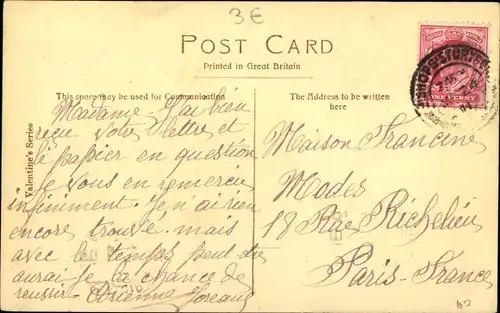 3€
POST CARD
Printed in Great Britain
This space may be used for Communication
The Address to be written
here
Valentine's Series
ONE PENNY
Madame J'ai bien
reçu votre lettre et
le papier en question
Je vous en remercie
infiniment. Je n'ai rien
encore trouvé. mais
avec le temps peut être
aurai je la chance de
réussir
Maison Francine
Modes
18 Rue Richelieu
Paris-France